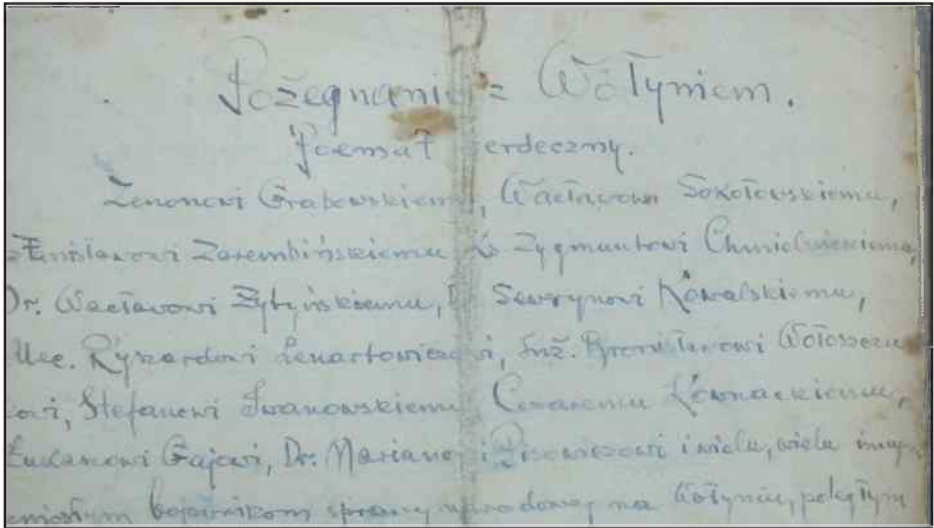 Pożegnanie z Wołyniem.
Poemat serdeczny.
Zenonowi Grabowskiemu, Wacławowi Sokołowskiemu,
Stanisławowi Zarembińskiemu Ks Zygmuntowi Chmielnickiemu,
Dr. Wacławowi Żytyńskiemu, Dr Sewerynowi Kowalskiemu,
Mec. Ryszardowi Lenartowiczowi, Inż. Bronisławowi Wołoszczu
Stefanowi Iwanowskiemu Cezaremu Kownackiemu,
Łukaszowi Gajowi, Dr. Marianowi i wielu, wielu innym
bojownikom sprawy narodowej na Wołyniu, poległym